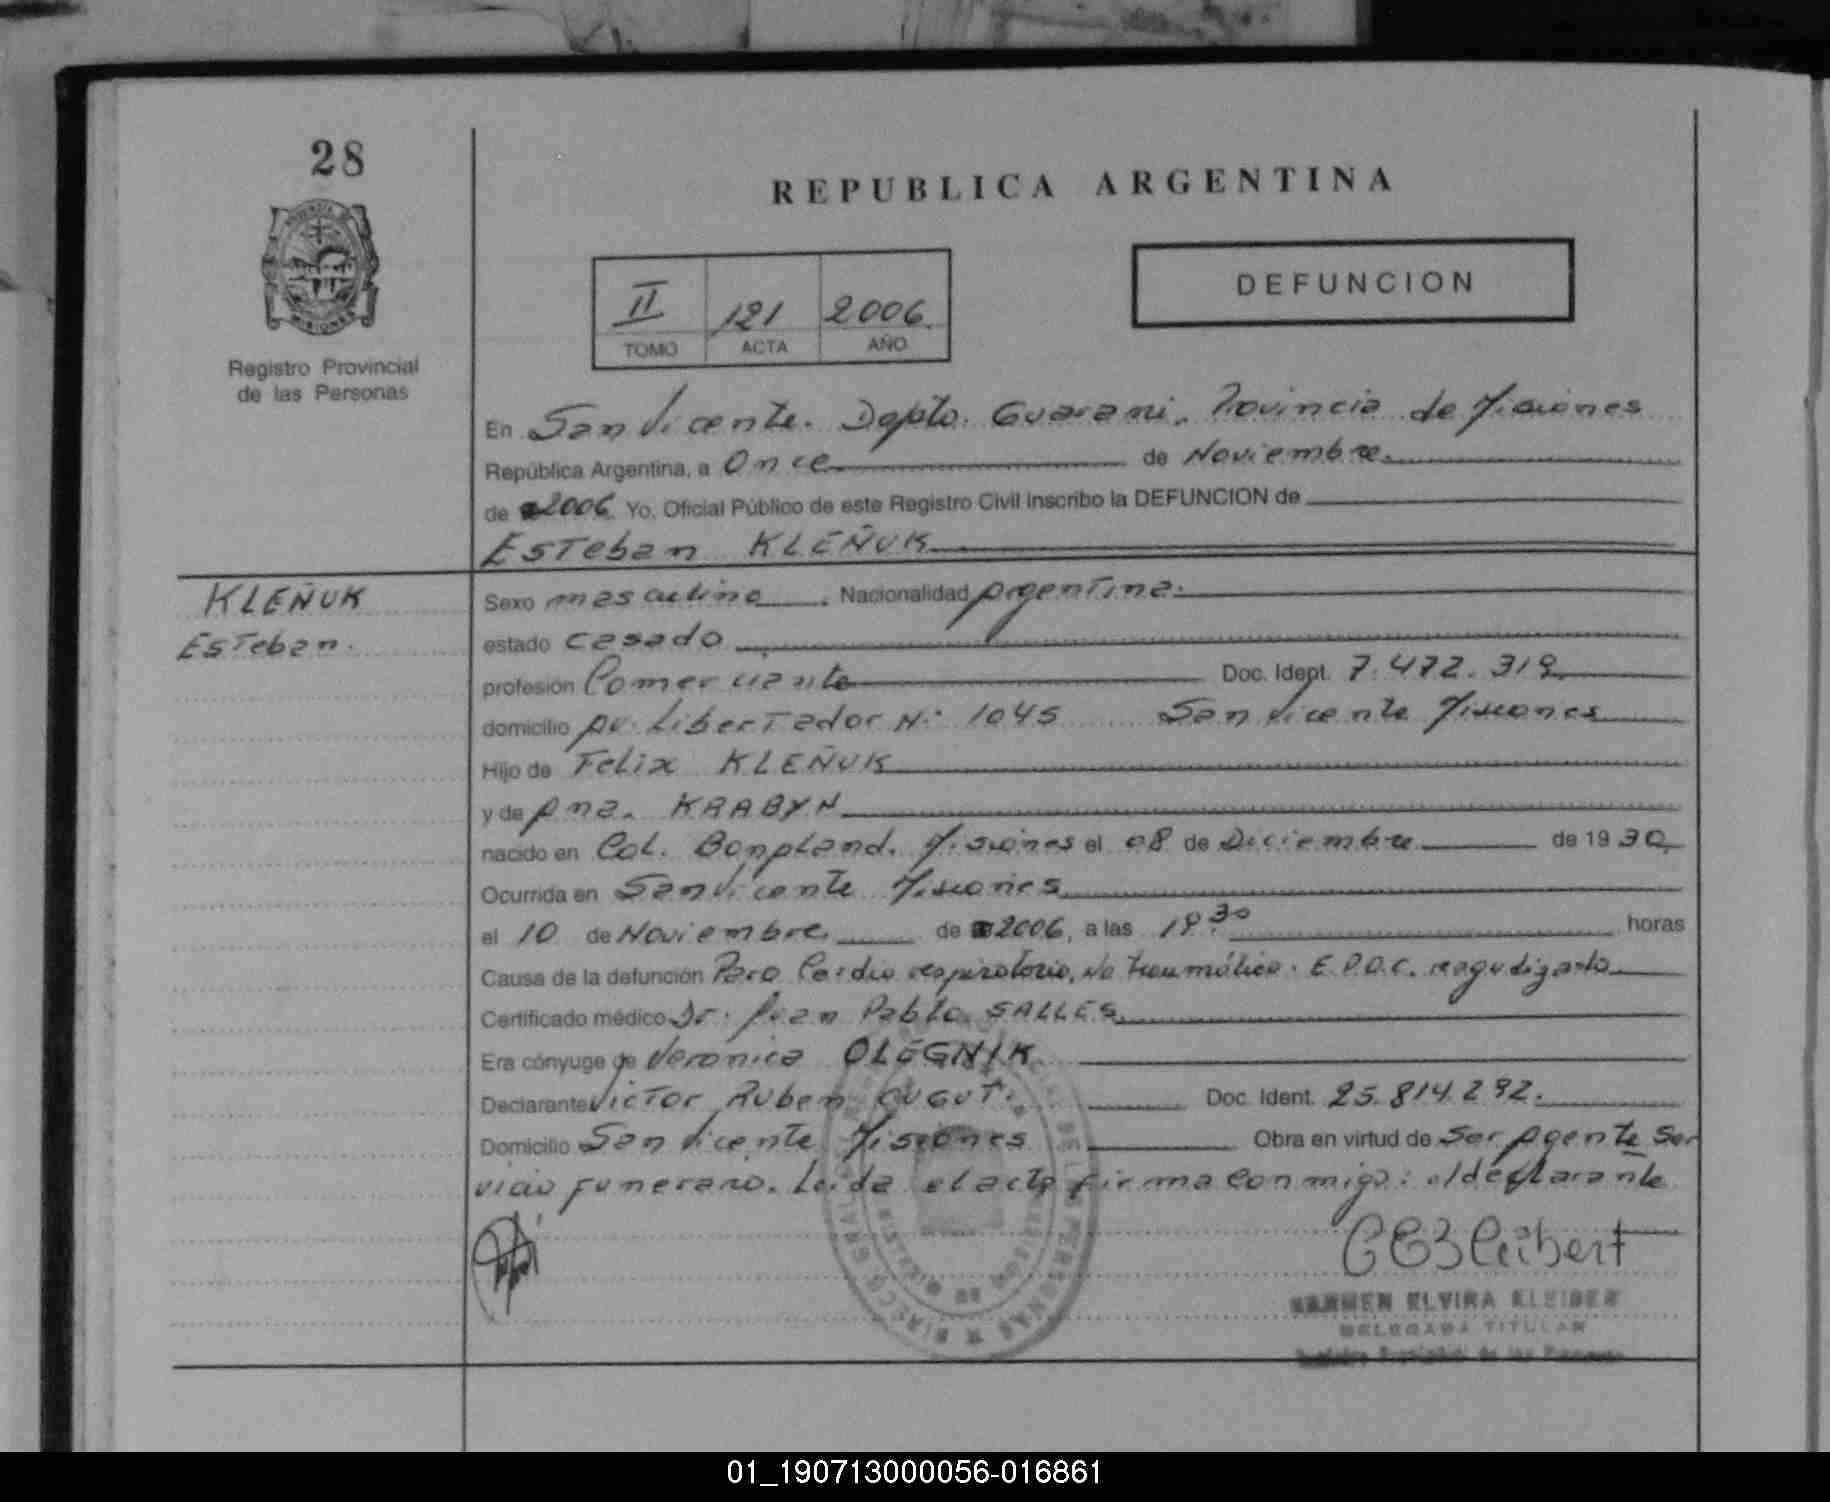 28
REPUBLICA ARGENTINA
PROVINCIA DE
MISIONES
Registro Provincial
de las Personas
II 121 2006.
TOMO ACTA AÑO
DEFUNCION
En San Vicente. Dpto. Guarani. Provincia de Misiones
República Argentina, a Once de Noviembre.
de 2006. Yo, Oficial Público de este Registro Civil inscribo la DEFUNCION de
Esteban KLEÑUK
KLEÑUK
Esteban.
Sexo masculino. Nacionalidad Argentina.
estado casado
profesión Comerciante Doc. Ident. 7.472.319
domicilio Av. Libertador N: 1045 San Vicente Misiones
Hijo de Felix KLEÑUK
y de Ana. KRABYN
nacido en Col. Bonpland. Misiones el 08 de Diciembre de 1930
Ocurrida en San Vicente Misiones
el 10 de Noviembre. de 2006, a las 18:30 horas
Causa de la defunción Paro Cardio respiratorio, No traumático. E.P.O.C. reagudizado
Certificado médico Dr. Juan Pablo SALLES.
Era cónyuge de Veronica OLEGNIK
Declarante Victor Ruben CUGUT. Doc. Ident. 25.814.292.
Domicilio San Vicente Misiones Obra en virtud de Ser Agente Ser
vicio funerario. Leida el acta firma conmigo: el declarante
CARMEN ELVIRA KLEIBER
DELEGADA TITULAR
Registro Provincial de las Personas
01_190713000056-016861